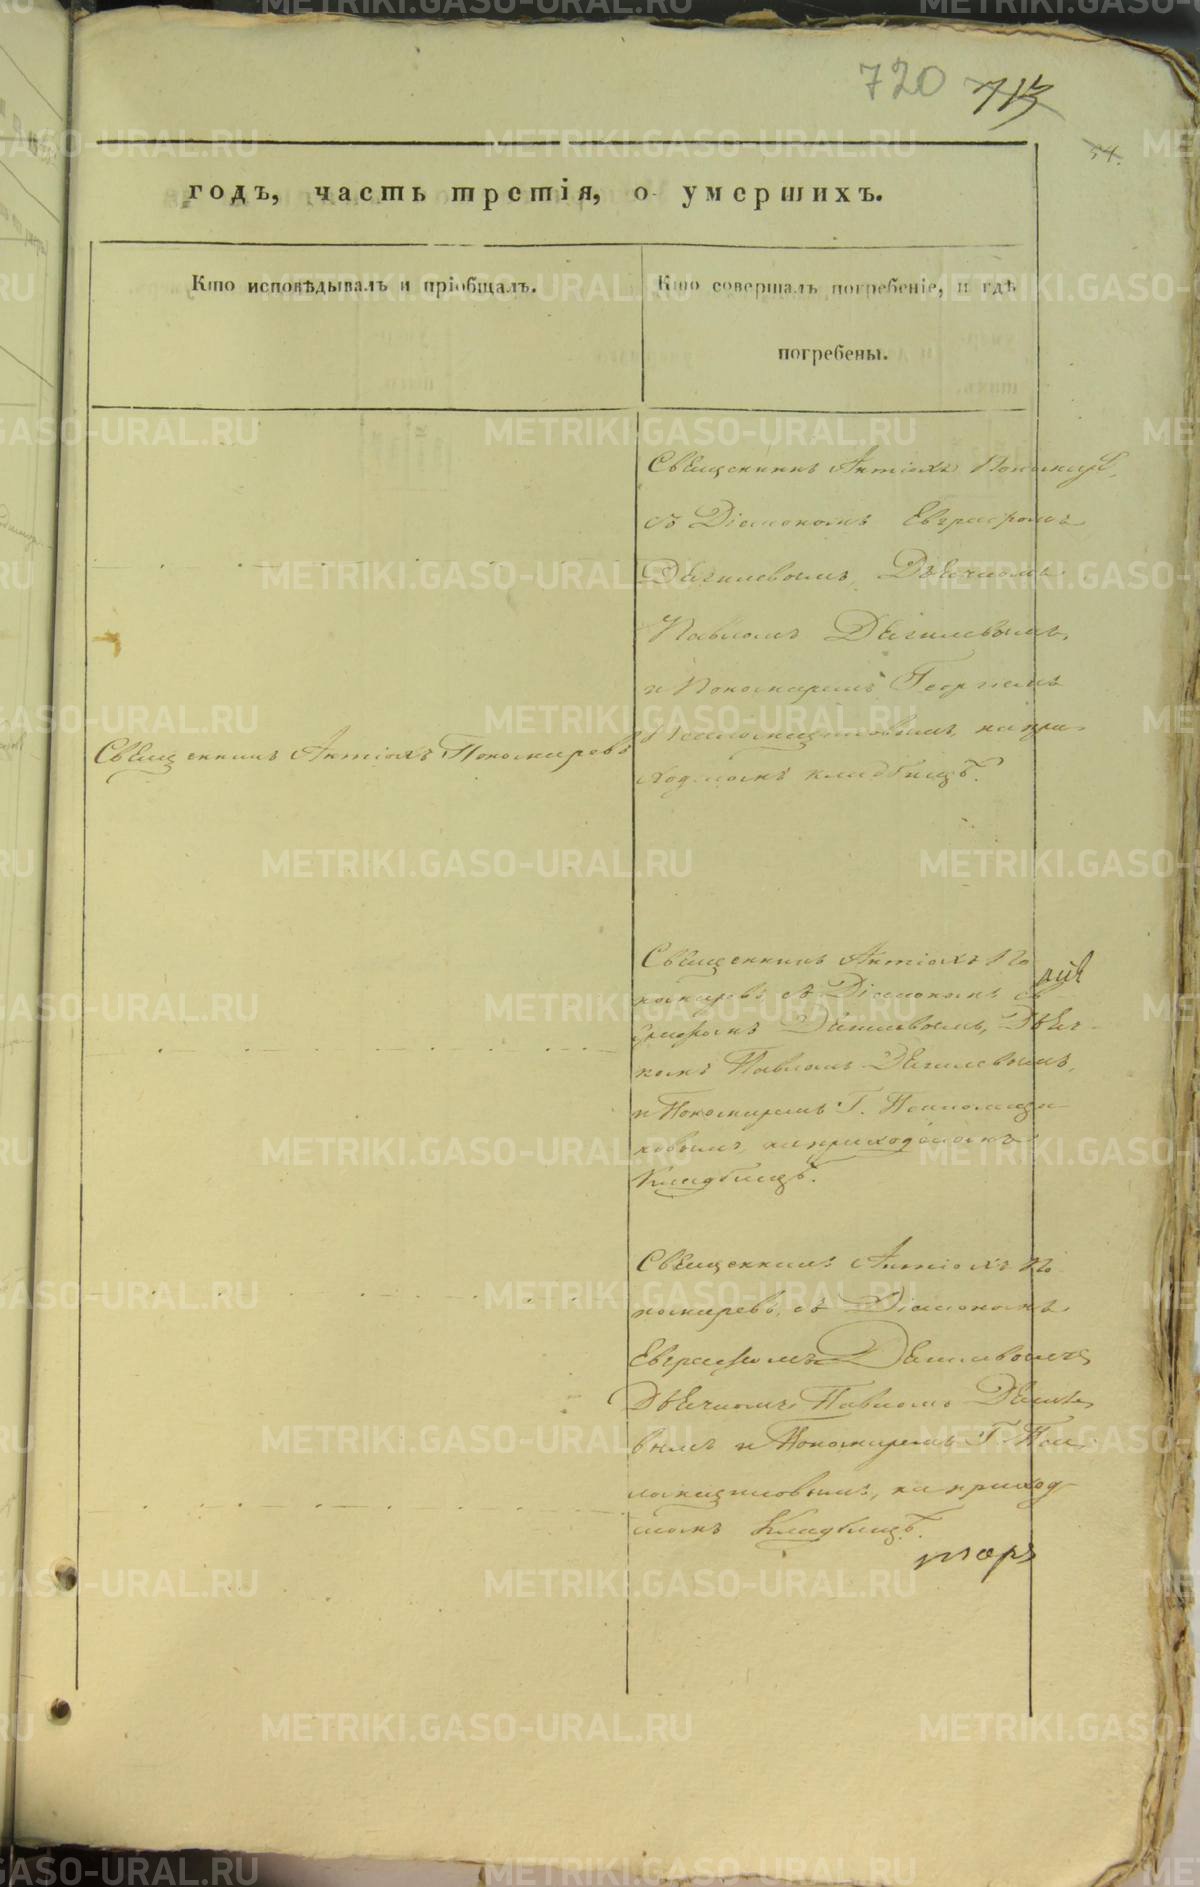 720 713
54.
годъ, часть третія, о умершихъ.
Кто исповѣдывалъ и пріобщалъ.
Кто совершалъ погребеніе, и гдѣ
погребены.
Священникъ Антіохъ Пономарев
съ Діакономъ Евграфомъ
Дягилевымъ, Дьячкомъ
Павломъ Дягилевымъ,
и Пономаремъ Георгіемъ
на при-
ходскомъ кладбищѣ.
Священникъ Антіохъ Пономаревъ
Священникъ Антіохъ По
номаревъ съ Діакономъ Ев-
графомъ Дягилевымъ, Дьяч-
комъ Павломъ Дягилевымъ,
и Пономаремъ Г.
на приходскомъ
Кладбищѣ.
Священникъ Антіохъ По
номаревъ, съ Діакономъ
Евграфомъ Дягилевымъ,
Дьячкомъ Павломъ Дягиле-
вымъ и Пономаремъ Г.
на приход-
скомъ Кладбищѣ.
METRIKI.GASO-URAL.RU